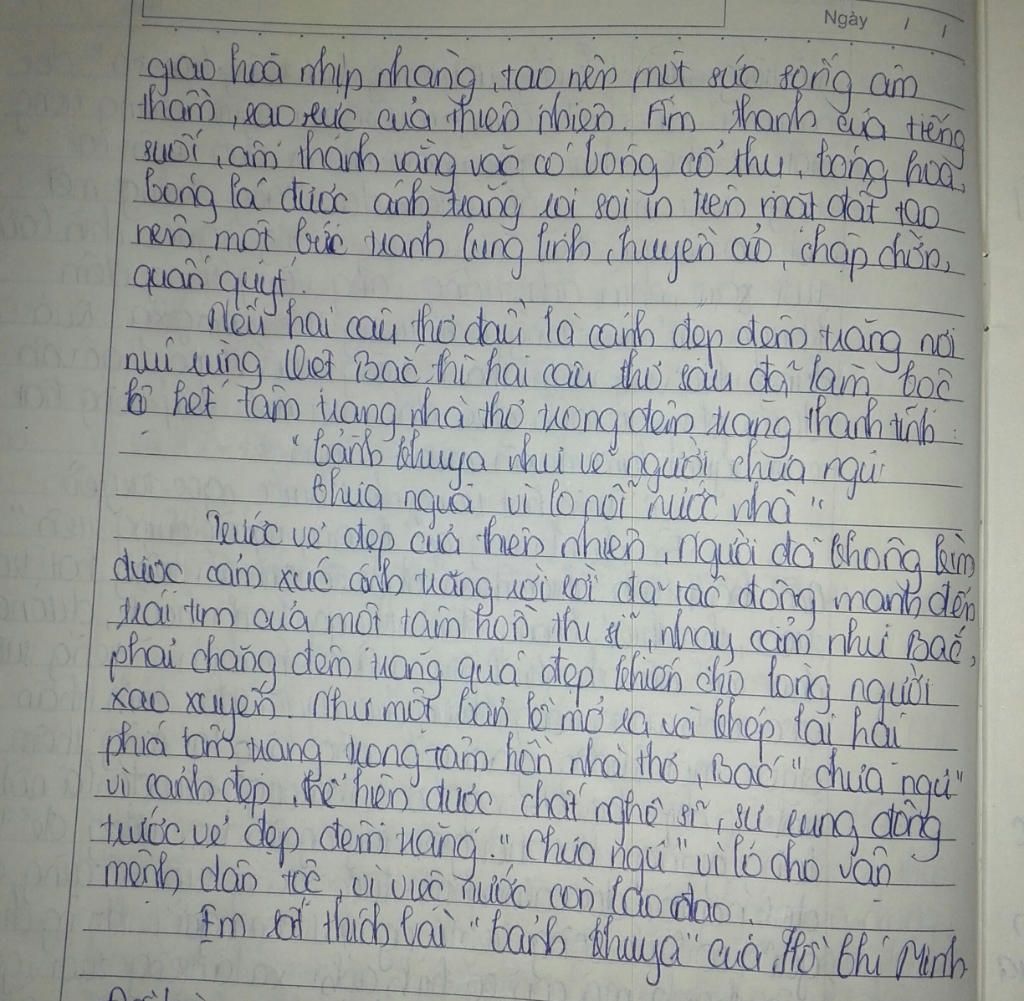 Ngày / /
giao hoà nhịp nhàng, tạo nên một sức sống âm
thầm, rạo rực của thiên nhiên. Âm thanh của tiếng
suối, âm thanh vang vọc có bóng cổ thụ, bóng hoa,
bóng lá được ánh trăng rọi soi in trên mặt đất tạo
nên một bức tranh lung linh, huyền ảo, chập chờn,
quấn quýt.
Nếu hai câu thơ đầu là cảnh đẹp đêm trăng nơi
núi rừng Việt Bắc thì hai câu thơ sau đã làm bộc
lộ hết tâm trạng nhà thơ trong đêm trăng thanh tĩnh:
"Cảnh khuya như vẽ người chưa ngủ
Chưa ngủ vì lo nỗi nước nhà"
Trước vẻ đẹp của thiên nhiên, Người đã không kìm
được cảm xúc ánh trăng vời vời đã tác động mạnh đến
trái tim của một tâm hồn thi sĩ, nhạy cảm như Bác,
phải chăng đêm trăng quá đẹp khiến cho lòng người
xao xuyến. Như một bản lề mở ra và khép lại hai
phía tâm trạng trong tâm hồn nhà thơ, Bác "chưa ngủ"
vì cảnh đẹp, thể hiện được chất nghệ sĩ, sự rung động
trước vẻ đẹp đêm trăng. "Chưa ngủ" vì lo cho vận
mệnh dân tộc, vì việc nước còn lao đao.
Em rất thích bài "Cảnh khuya" của Hồ Chí Minh